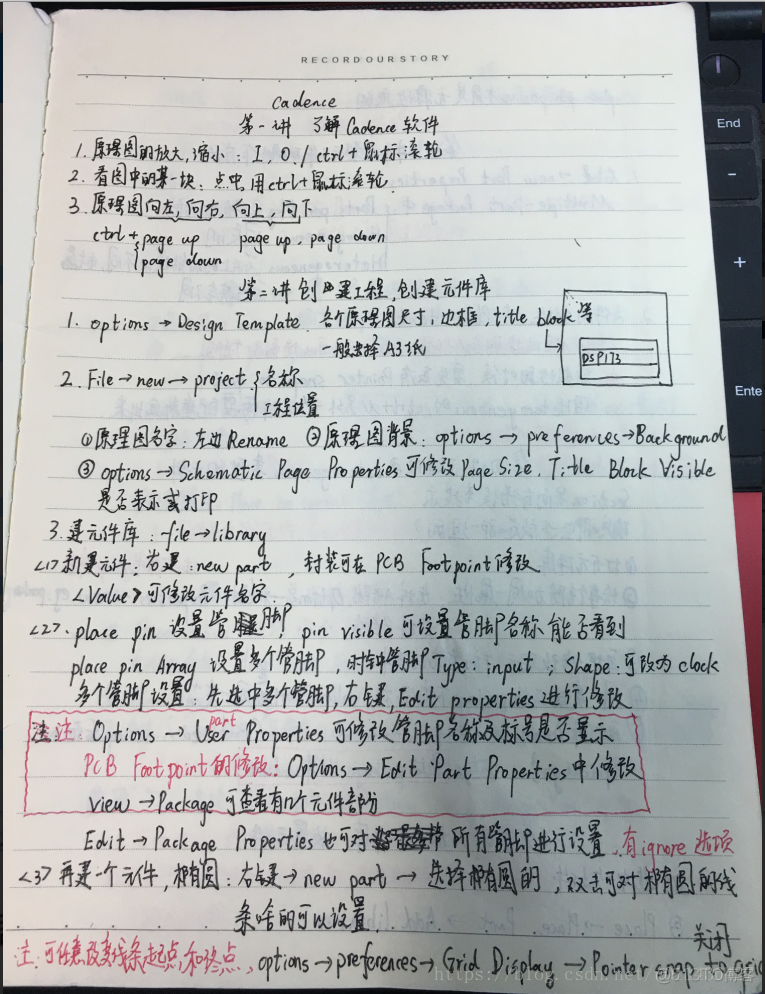 RECORD OUR STORY
Cadence
第一讲 了解Cadence软件
1. 原理图的放大,缩小: I, O / ctrl+鼠标滚轮
2. 看图中的某一块: 点中,用ctrl+鼠标滚轮
3. 原理图向左,向右,向上,向下
ctrl+ { page up page up, page down
page down
第二讲 创建工程,创建元件库
1. options → Design Template 各个原理图尺寸,边框,title block等
一般选择A3纸
DSP173
2. File → new → project { 名称
工程位置
①原理图名字: 左边Rename ②原理图背景: options → preferences→Background
③ options → Schematic Page Properties 可修改Page Size, Title Block Visible
是否表示或打印
3. 建元件库: file→library
<1>新建元件: 右建: new part , 封装可在 PCB Footpoint修改
<Value>可修改元件名字
<2>. place pin 设置管脚, pin visible 可设置管脚名称能否看到
place pin Array 设置多个管脚, 时钟管脚Type: input ; Shape: 可改为clock
多个管脚设置: 先选中多个管脚,右键,Edit properties进行修改
注: Options → User part Properties 可修改管脚名称及标号是否显示
PCB Footpoint的修改: Options → Edit Part Properties 中修改
view → Package 可查看有几个元件部份
Edit → Package Properties 也可对所有管脚进行设置,有ignore选项
<3>再建一个元件,椭圆: 右键→new part → 选择椭圆的,双击可对椭圆的线
条啥的可以设置
关闭
注: 可任意改变线条起点,和终点, options → preferences → Grid Display → Pointer snap to grid
End
-
+
Ente
https://blog.csdn.net